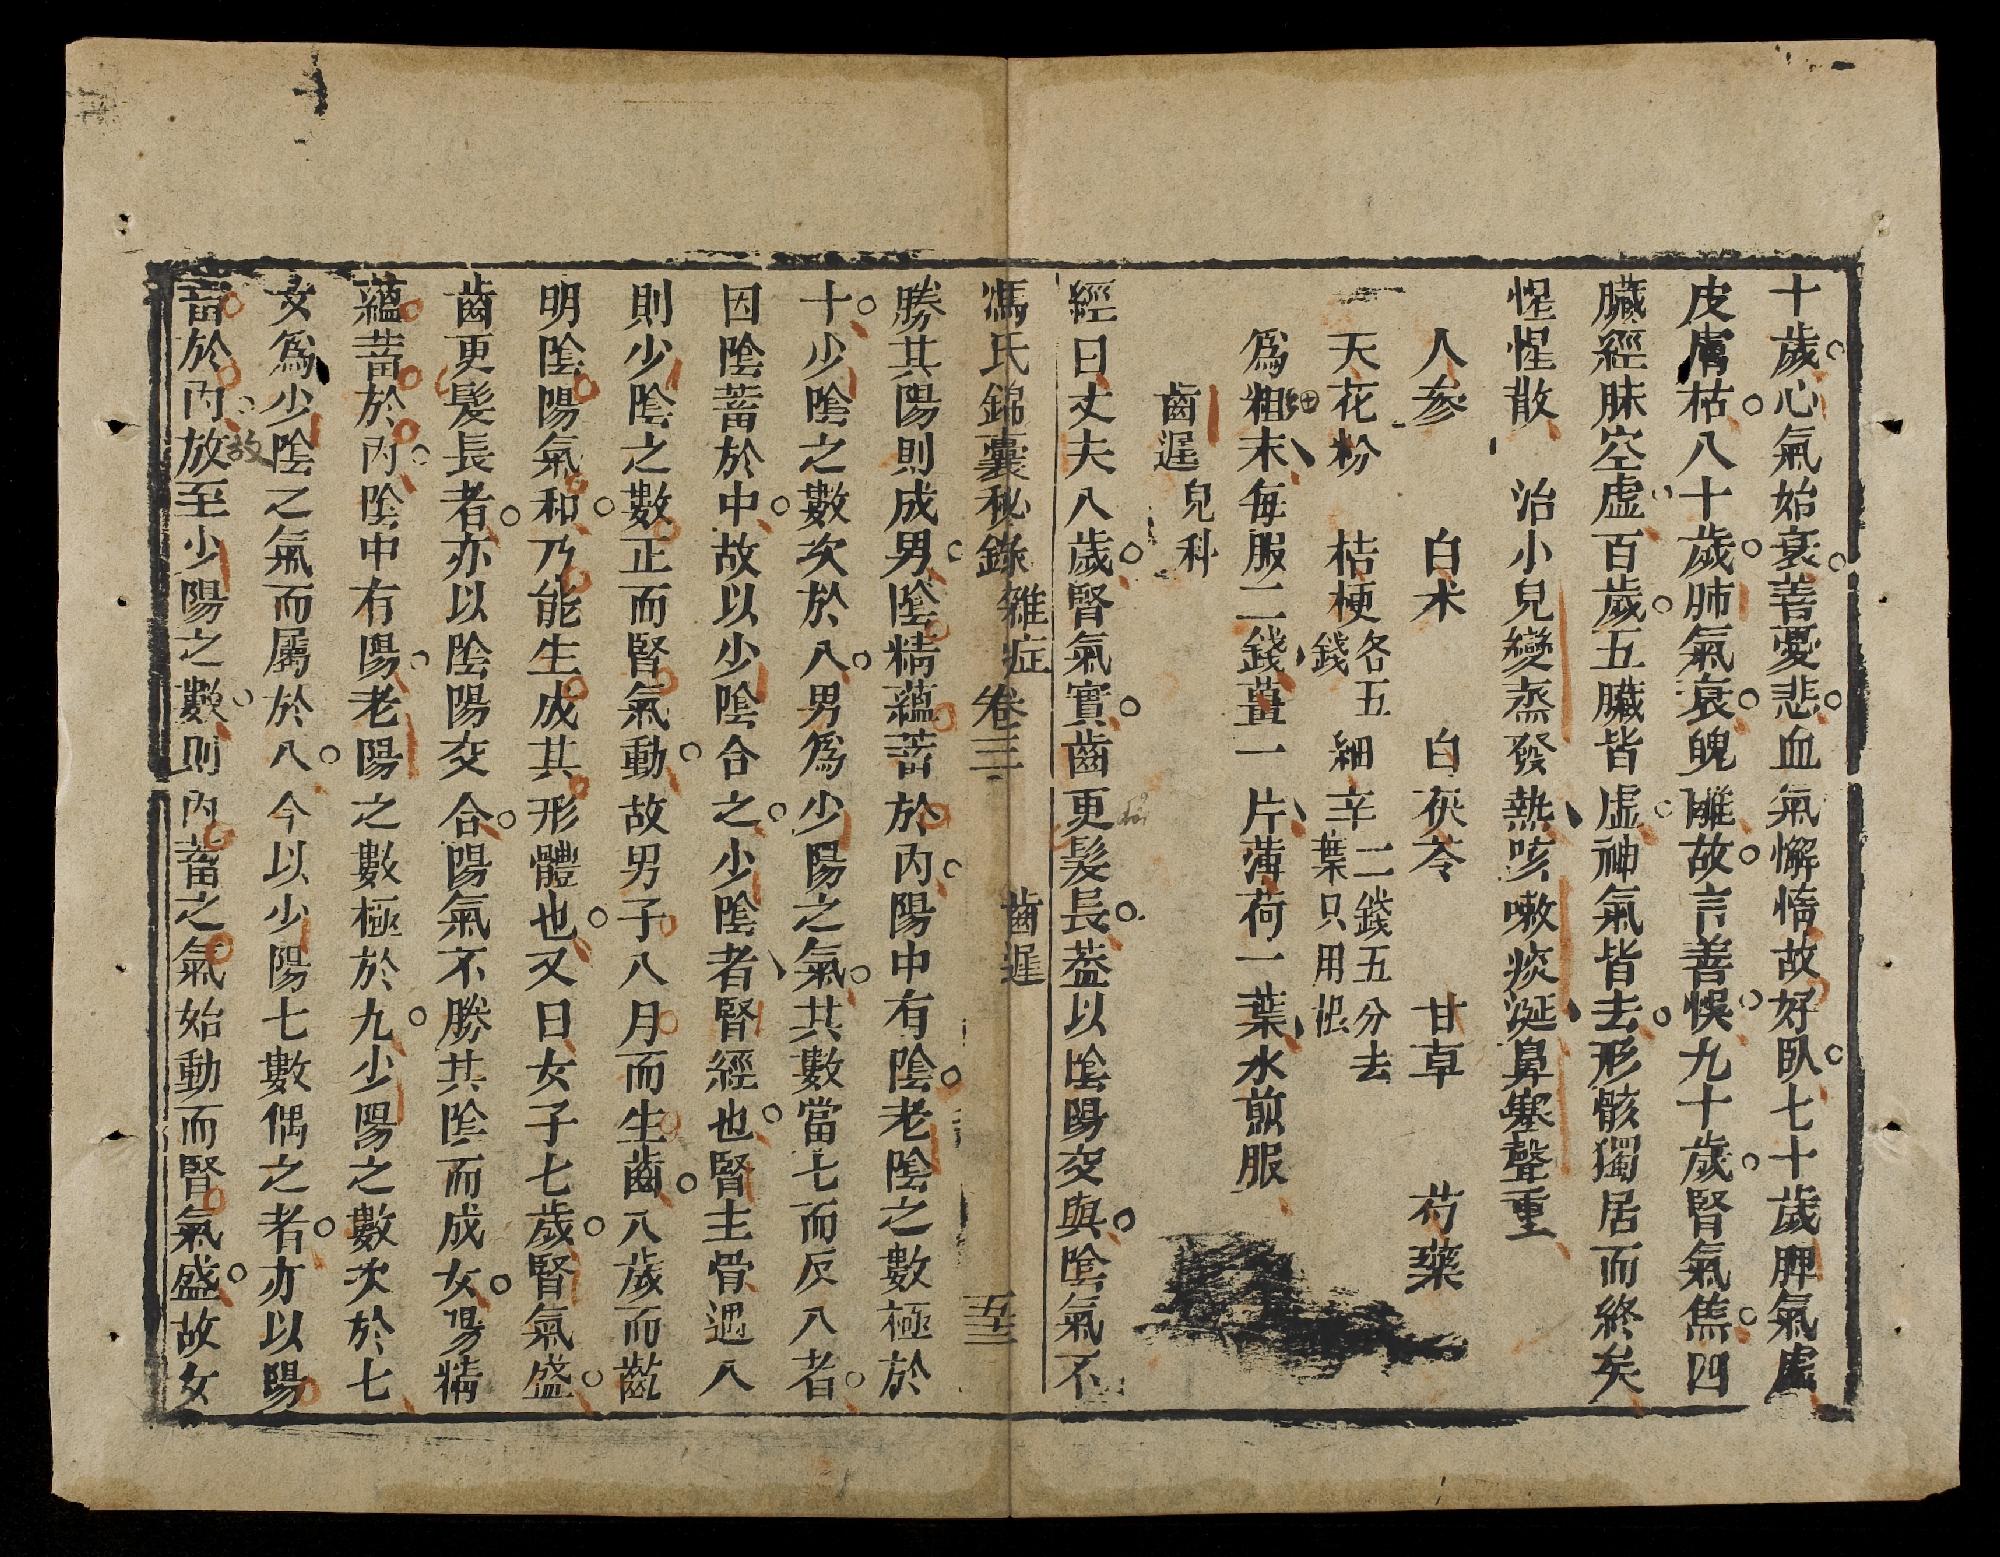 十歲心氣始衰善憂悲血氣懈惰故好臥七十歲脾氣虛
皮膚枯八十歲肺氣衰魄離故言善悞九十歲腎氣焦四
臟經脉空虛百歲五臟皆虛神氣皆去形骸獨居而終矣
惺惺散 治小兒變蒸發熱咳嗽痰涎鼻塞聲重
人參 白术 白茯苓 甘草 芍藥
天花粉 桔梗各五錢 細辛二錢五分去葉只用根
為粗末每服二錢薑一片薄荷一葉水煎服
細
齒遲兒科
經曰丈夫八歲腎氣實齒更髮長葢以陰陽交與陰氣不
đổi
馮氏錦囊秘錄 雜症 卷三 齒遲 五三
勝其陽則成男陰精蘊蓄於內陽中有陰老陰之數極於
十少陰之數次於八男為少陽之氣其數當七而反八者
因陰蓄於中故以少陰合之少陰者腎經也腎主骨遇八
則少陰之數正而腎氣動故男子八月而生齒八歲而齔
明陰陽氣和乃能生成其形體也又曰女子七歲腎氣盛
齒更髮長者亦以陰陽交合陽氣不勝其陰而成女陽精
蘊蓄於內陰中有陽老陽之數極於九少陽之數次於七
女為少陰之氣而屬於八今以少陽七數偶之者亦以陽
故
畜於內放至少陽之數則內畜之氣始動而腎氣盛故女